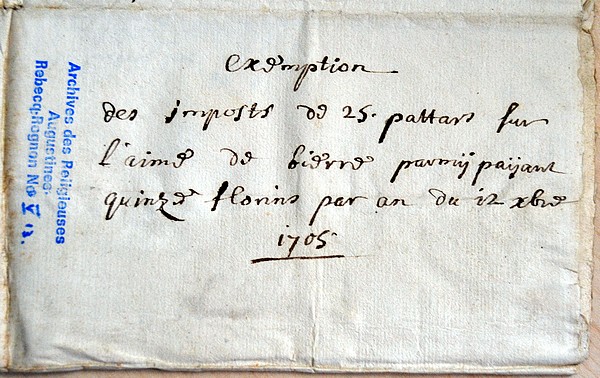 Exemption
des imposts de 25. pattars sur
l'aime de bierre parmÿ paÿant
quinze florins par an du 12 xbre
1705
Archives des Religieuses
Augustines.
Rebecq-Rognon No V 13.